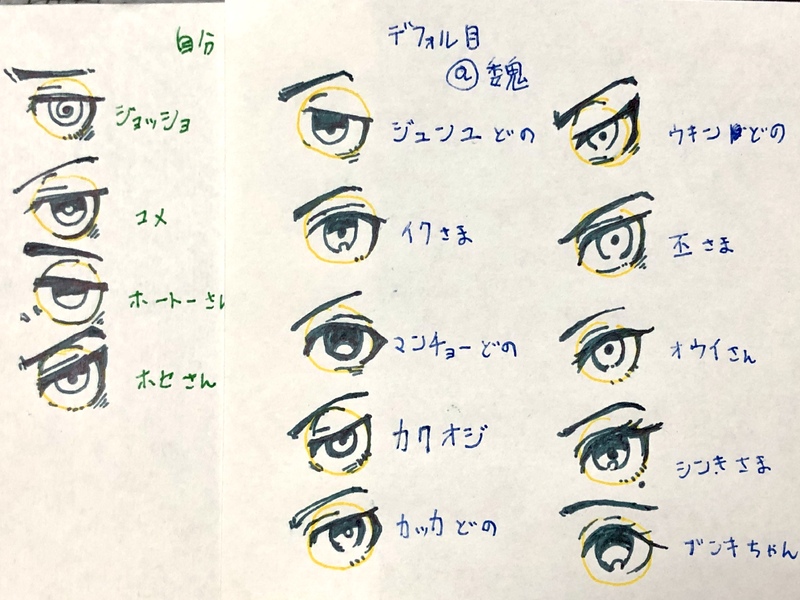 自分
ジョッショ
コメ
ホートーさん
ホセさん
デフォル目
@魏
ジュンユどの
イクさま
マンチョーどの
カクオジ
カッカどの
ウキンどの
丕さま
オウイさん
シンキさま
ブンキちゃん